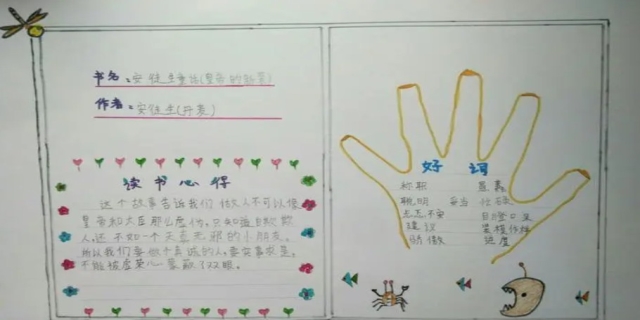 书名：安徒生童话(皇帝的新装)
作者：安徒生(丹麦)
读书心得
这个故事告诉我们做人不可以像
皇帝和大臣那么虚伪,只知道自欺欺
人,还不如一个天真无邪的小朋友。
所以我们要做个真诚的人,要实事求是,
不能被虚荣心蒙蔽了双眼。
好词
称职
聪明 妥当
愚蠢
建议
骄傲